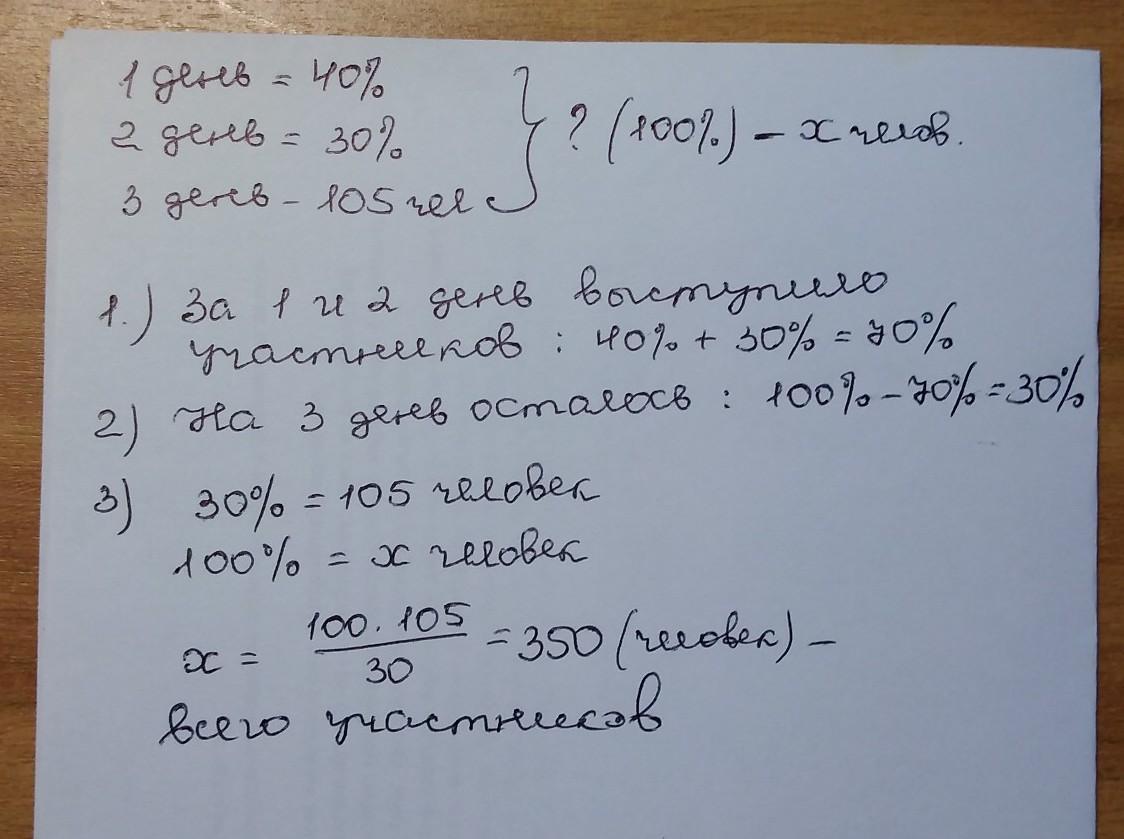 1 день = 40%
2 день = 30%
3 день - 105 чел
? (100%) - х челов.
1.) За 1 и 2 день выступило
участников : 40% + 30% = 70%
2) На 3 день осталось : 100% - 70% = 30%
3) 30% = 105 человек
100% = х человек
х = 100 · 105 / 30 = 350 (человек) -
всего участников